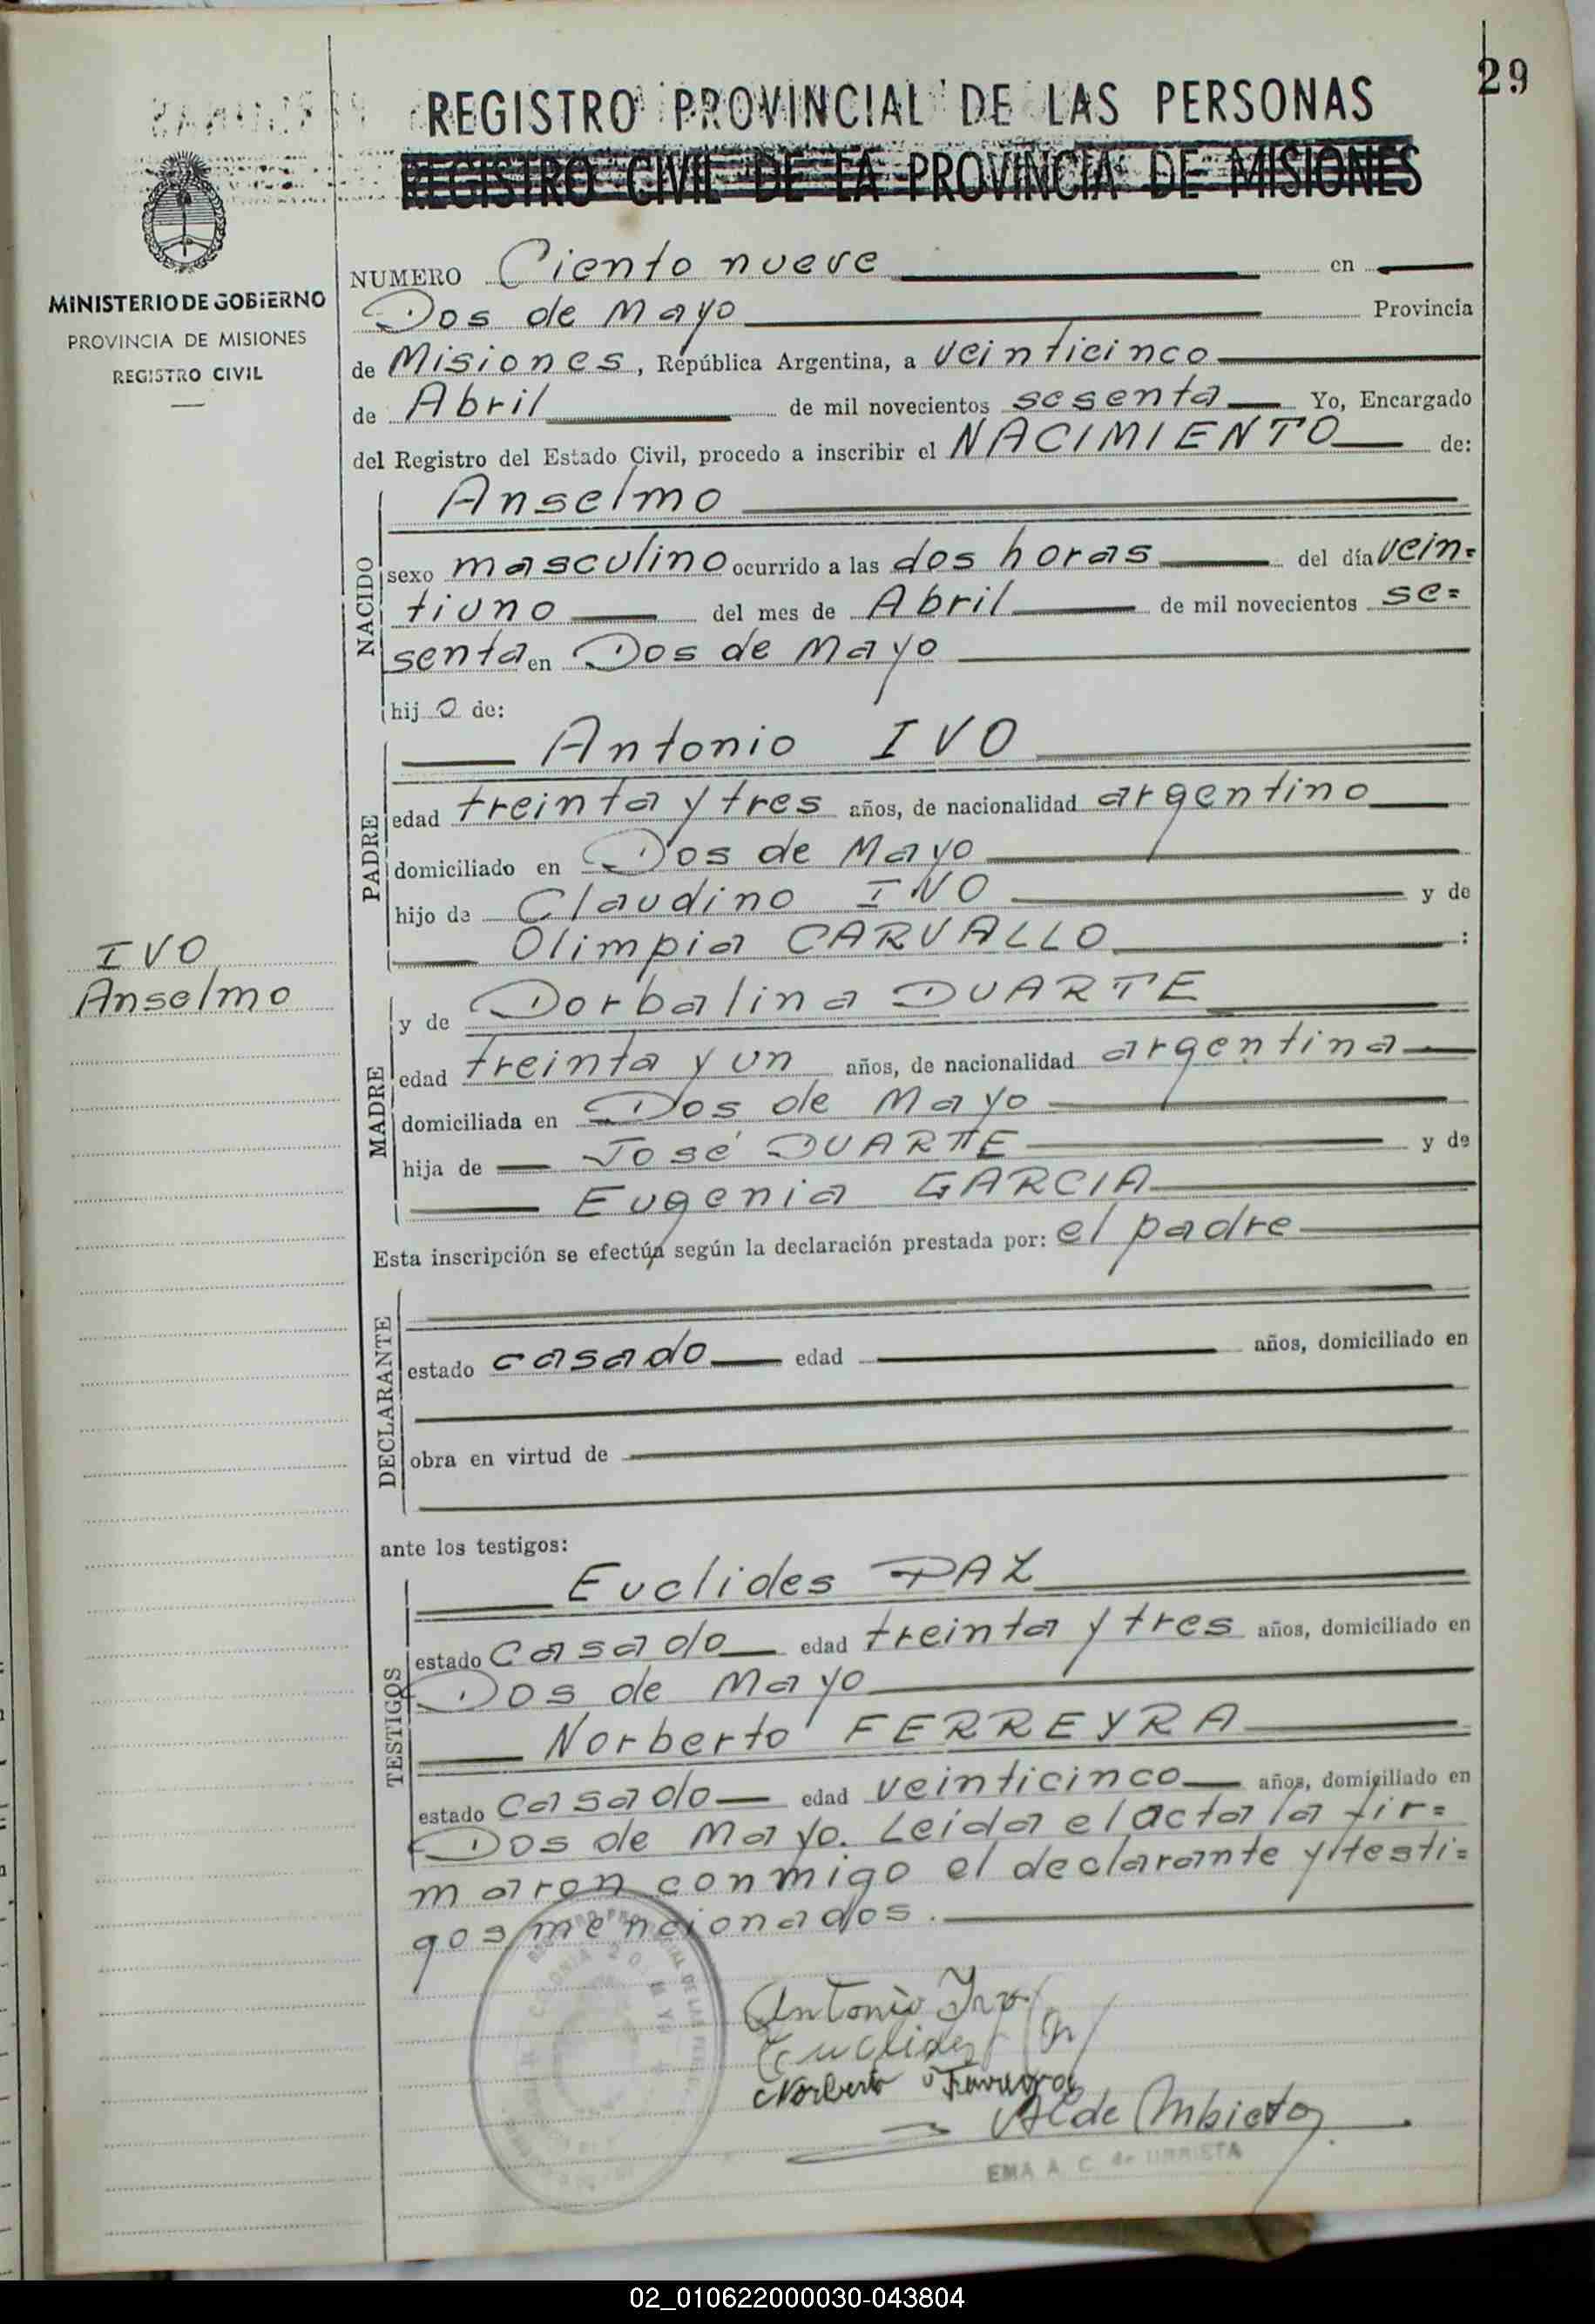 29
REGISTRO PROVINCIAL DE LAS PERSONAS
REGISTRO CIVIL DE LA PROVINCIA DE MISIONES
MINISTERIO DE GOBIERNO
PROVINCIA DE MISIONES
REGISTRO CIVIL
NUMERO Ciento nueve en
Dos de Mayo Provincia
de Misiones, República Argentina, a veinticinco
de Abril de mil novecientos sesenta Yo, Encargado
del Registro del Estado Civil, procedo a inscribir el NACIMIENTO de:
NACIDO
Anselmo
sexo masculino ocurrido a las dos horas del día vein=
tiuno del mes de Abril de mil novecientos se=
senta en Dos de Mayo
hijo de:
PADRE
Antonio IVO
edad treinta y tres años, de nacionalidad argentino
domiciliado en Dos de Mayo
hijo de Claudino IVO y de
Olimpia CARVALLO :
IVO
Anselmo
MADRE
y de Dorbalina DUARTE
edad treinta y un años, de nacionalidad argentina
domiciliada en Dos de Mayo
hija de José DUARTE y de
Eugenia GARCIA
Esta inscripción se efectúa según la declaración prestada por: el padre
DECLARANTE
estado casado edad años, domiciliado en
obra en virtud de
ante los testigos:
TESTIGOS
Euclides PAZ
estado Casado edad treinta y tres años, domiciliado en
Dos de Mayo
Norberto FERREYRA
estado Casado edad veinticinco años, domiciliado en
Dos de Mayo. Leida el acta la fir=
maron conmigo el declarante y testi=
gos mencionados.
Antonio Ivo
Euclides
Norberto Ferreyra
EMA A. C. de URRIETA
02_010622000030-043804